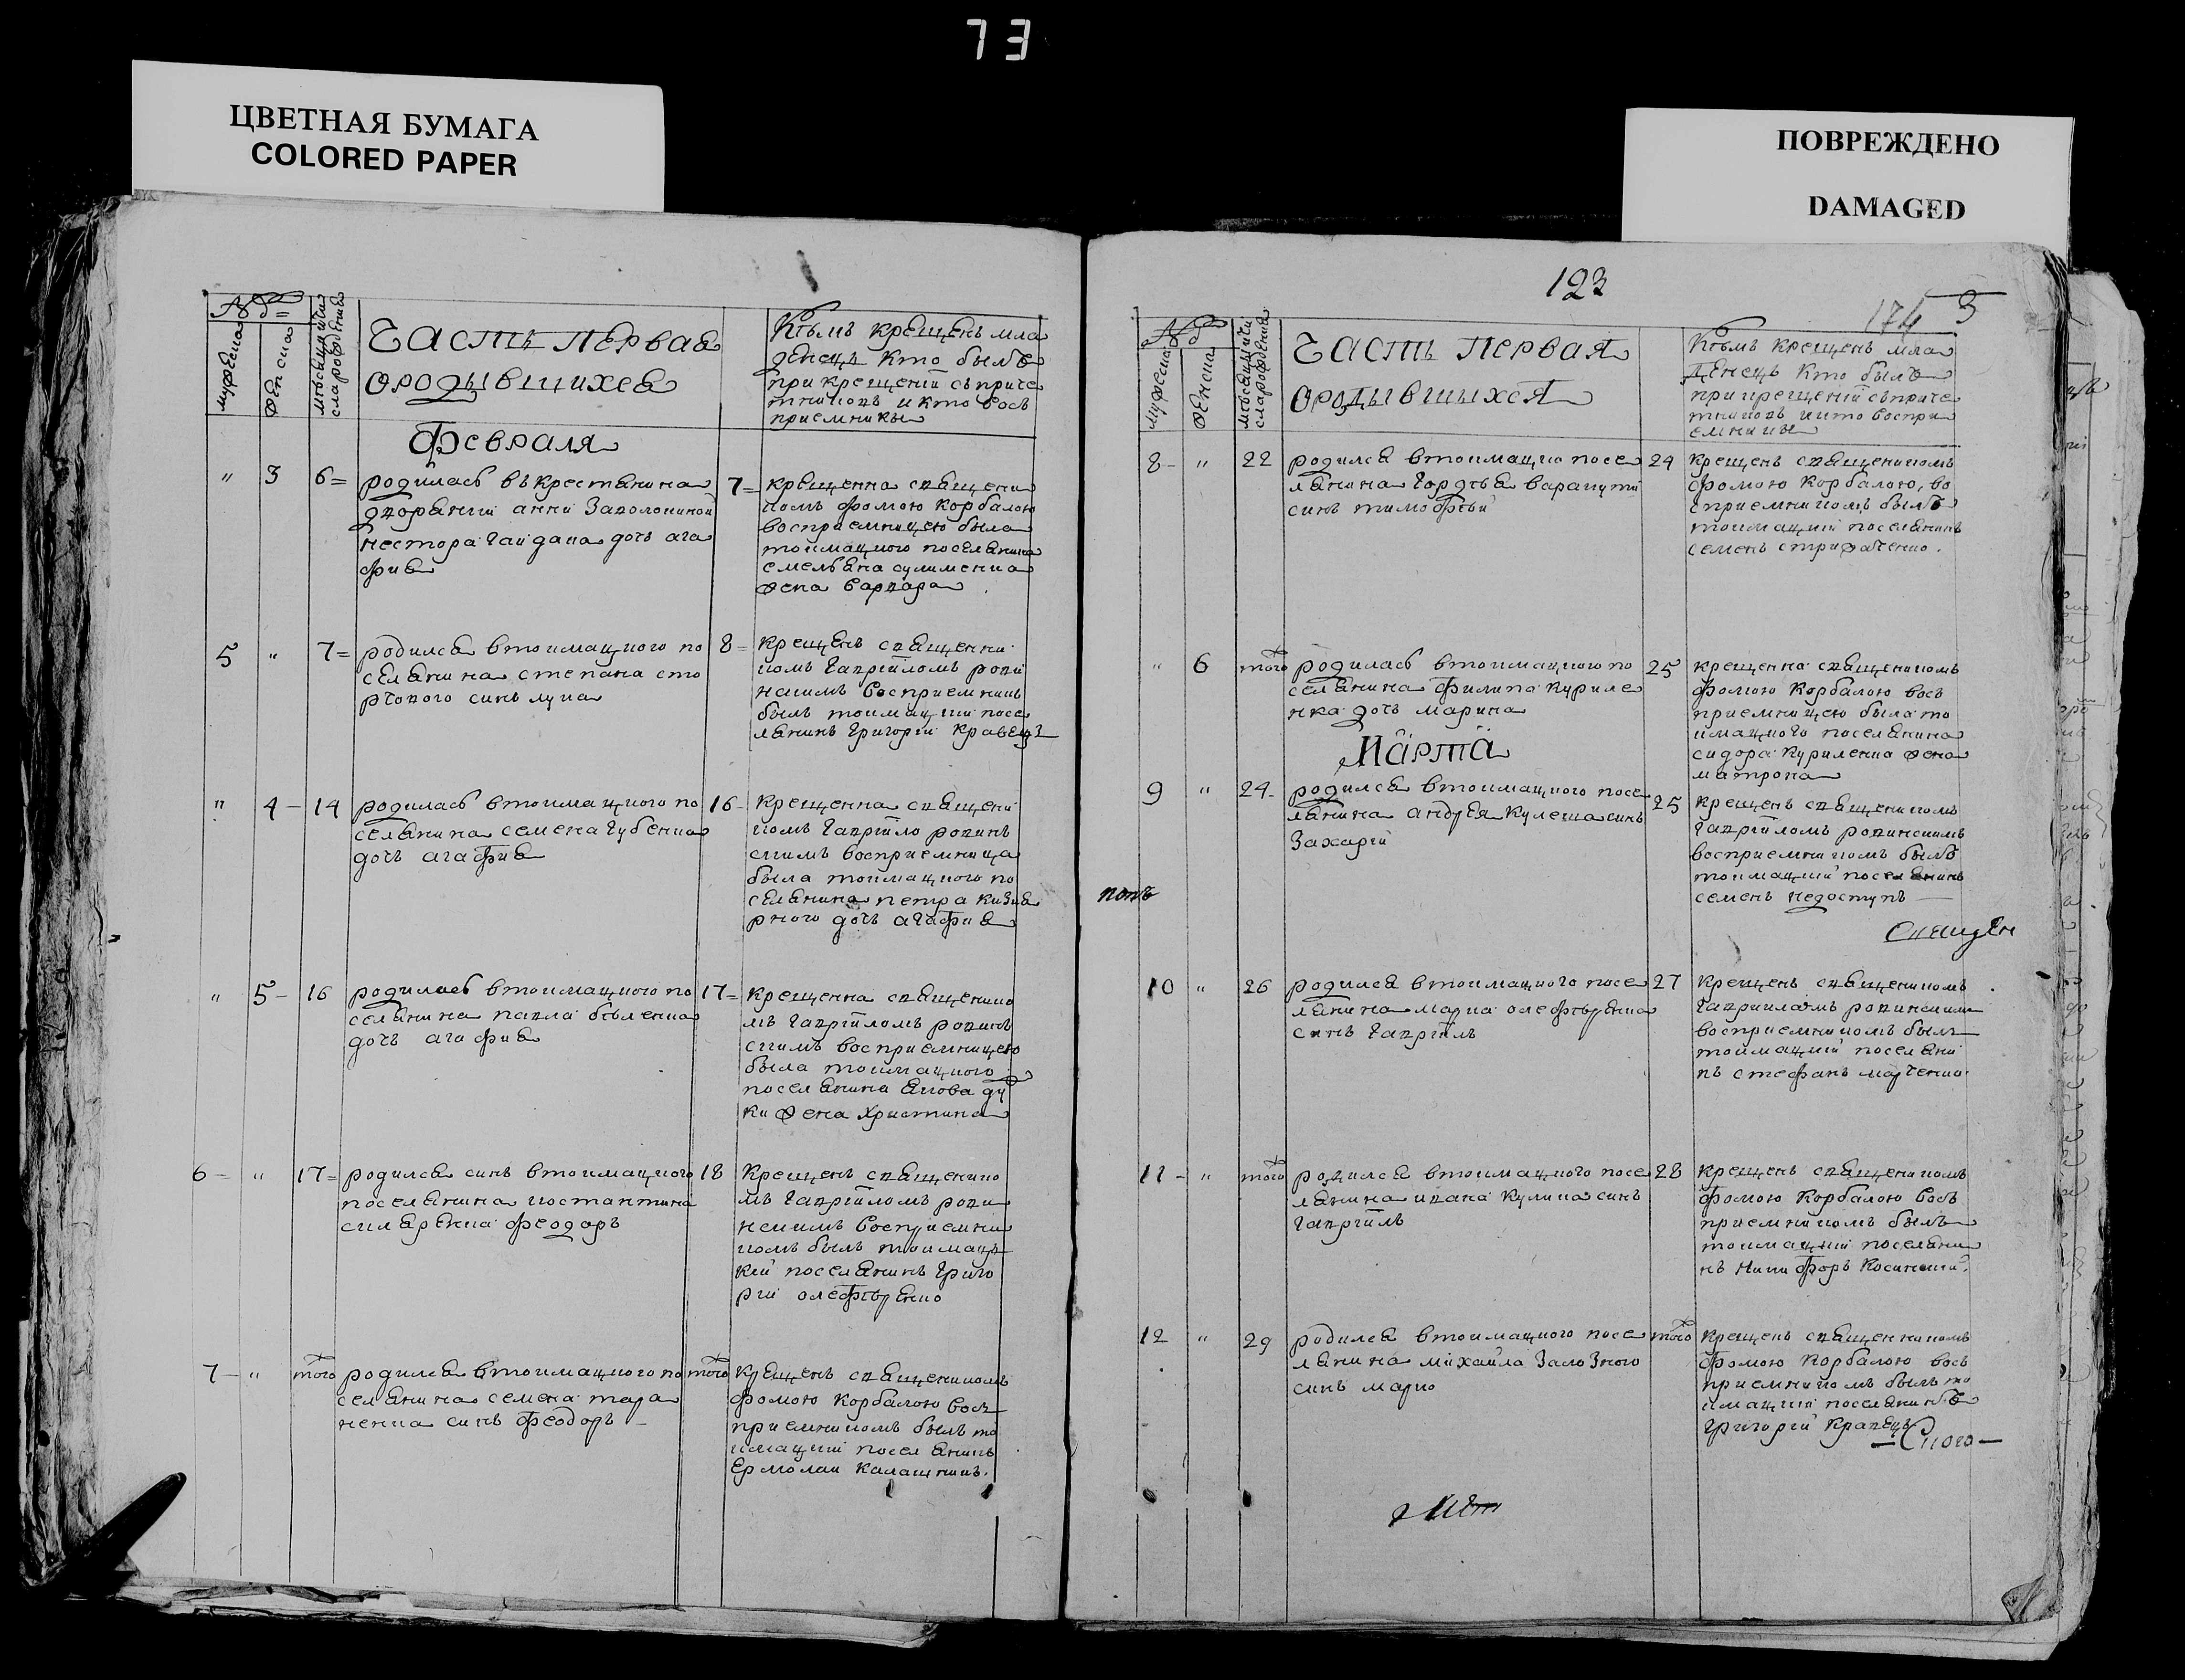 73
ЦВЕТНАЯ БУМАГА
COLORED PAPER
ПОВРЕЖДЕНО
DAMAGED
№
мужеска
женска
Часть первая
ородывшихся
Кѣмъ крещенъ мла
денецъ кто былъ
при крещеніи съ приче
тниковъ и кто вос
приемники
Февраля
" 3 6= родилась въ крестянина
дворянки анни Заполониной
нестора гайдана дочь ага
фия
7= крещенна священи
комъ фомою Корбалою
восприемницею была
тоимацкого поселянина
емельяна сулименка
жена варвара
5 " 7= родился в тоимацкого по
селянина степана сто
рчового синъ лука
8= крещенъ священи
комъ гавріиломъ рови
нскимъ восприемникъ
былъ тоимацкій посе
лянинъ григорій кравецъ
" 4- 14 родилась в тоимацкого по
селянина семена губенка
дочь агафия
16- крещенна священи
комъ гавріило ровинъ
скимъ восприемница
была тоимацкого по
селянина петра кизия
рного дочь агафия
" 5- 16 родилась в тоимацкого по
селянина павла бѣленка
дочь агафия
17= крещенна священико
мъ гавріиломъ ровинъ
скимъ восприемницею
была тоимацкого
поселянина якова ду
ки жена христина
6- " 17= родился синъ в тоимацкого
поселянина костантина
силяренка феодоръ
18 крещенъ священико
мъ гавріиломъ рови
нскимъ восприемни
комъ былъ тоимацъ
кій поселянинъ григо
рій олефѣренко
7- " того родился в тоимацкого по
селянина семена тара
ненка синъ феодоръ
того крещенъ священикомъ
фомою корбалою восъ
приемникомъ былъ то
имацкій поселянинъ
ермолаи калашникъ.
123
174 3
№
мужеска
женска
Часть первая
ородывшыхся
Кѣмъ крещенъ мла
денецъ кто былъ
при крещеніи съ приче
тниковъ и кто воспри
емники
8- " 22 родился в тоимацкого посе
лянина гордѣя варакути
синъ тимофѣй
24 крещенъ священикомъ
фомою корбалою, во
сприемникомъ былъ
тоимацкій поселянинъ
семенъ стрижаченко.
" 6 того родилась в тоимацкого по
селянина филипа куриле
нка дочь марина
25 крещенна священикомъ
фомою корбалою восъ
приемницею была то
имацкого поселянина
сидора куриленка жена
матрона
Марта
9 " 24- родился в тоимацкого посе
лянина андрея кулеша синъ
Захарій
25 крещенъ священикомъ
гавріиломъ ровинскимъ
восприемникомъ былъ
тоимацкій поселянинъ
семенъ недоступъ
попъ
Священ
10 " 26 родился в тоимацкого посе
лянина марка олефѣренка
синъ гавріилъ
27 крещенъ священикомъ
гавриіломъ ровинскимъ
восприемникомъ былъ
тоимацкій поселяни
нъ стефанъ марченко
11- " того родился в тоимацкого посе
лянина ивана кулика синъ
гавріилъ
28 крещенъ священикомъ
фомою корбалою восъ
приемникомъ былъ
тоимацкій поселяни
нъ никифоръ косинскій.
12 " 29 родился в тоимацкого посе
лянина михайла Зализного
синъ марко
того крещенъ священникомъ
фомою корбалою восъ
приемникомъ былъ то
имацкій поселянинъ
григорій кравецъ